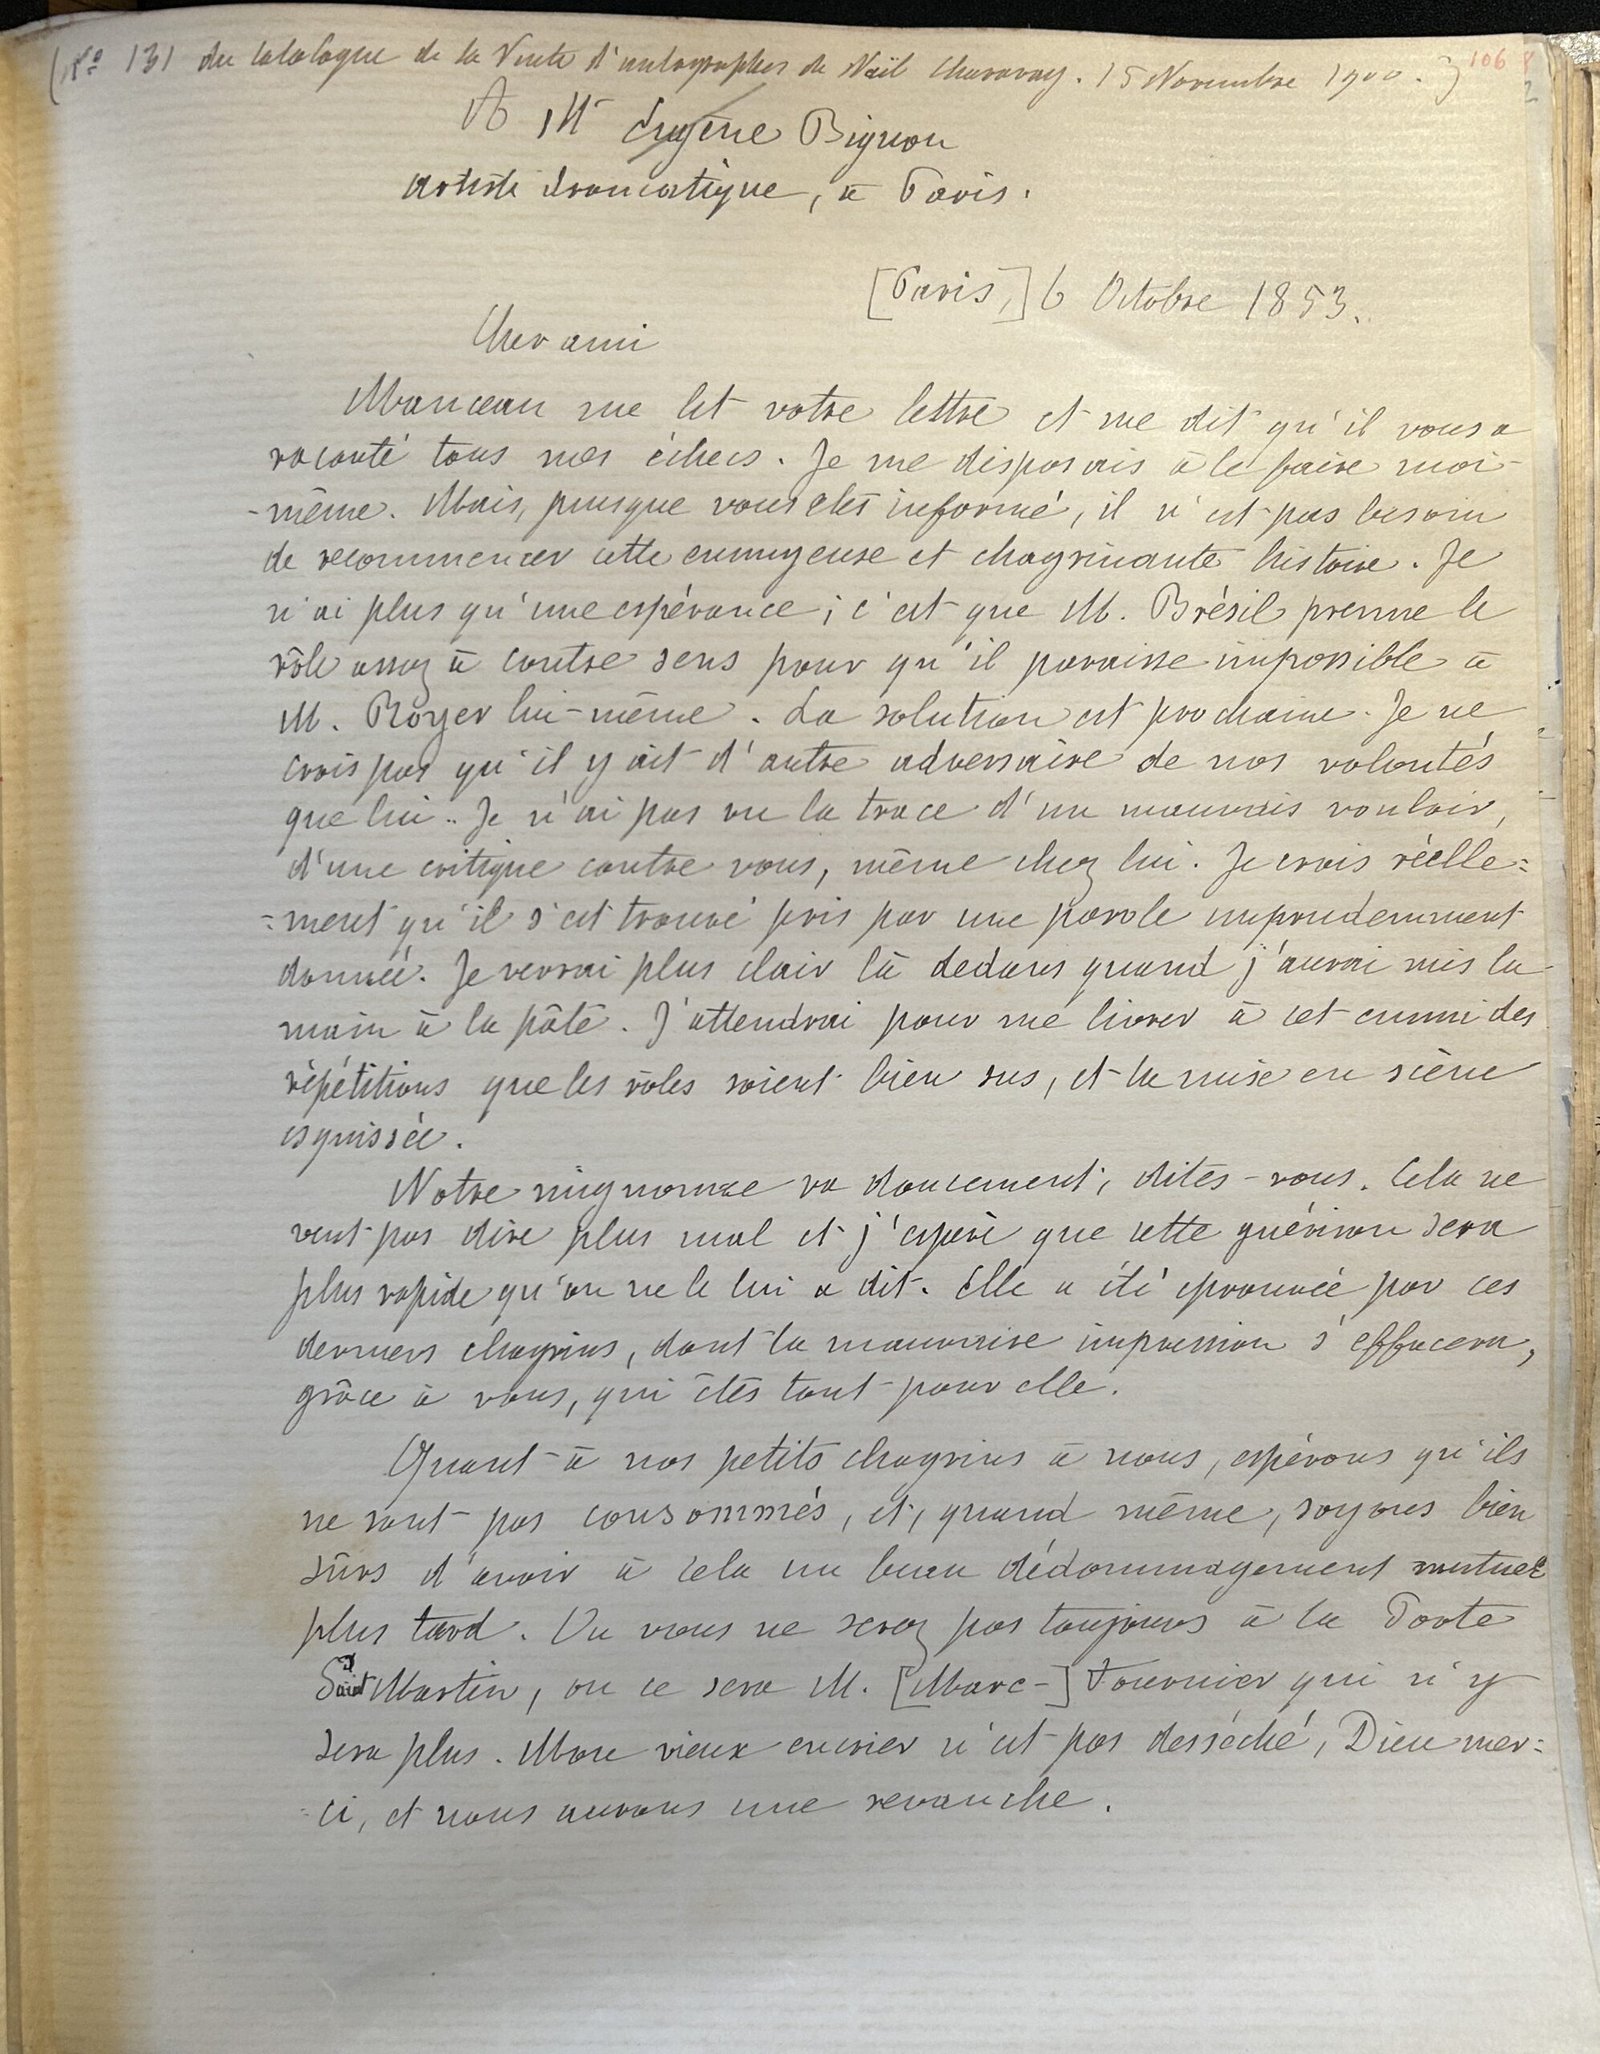 (No 131 du Catalogue de la Vente d'autographes de Noël Charavay. 15 Novembre 1900.) 106
A Mr Eugène Bignon
artiste dramatique, à Paris.
[Paris,] 6 Octobre 1853.
Cher ami
Manceau me lit votre lettre et me dit qu'il vous a
raconté tous mes échecs. Je me disposais à le faire moi-
-même. Mais, puisque vous êtes informé, il n'est pas besoin
de recommencer cette ennuyeuse et chagrinante histoire. Je
n'ai plus qu'une espérance ; c'est que M. Brésil prenne le
rôle assez à contre sens pour qu'il paraisse impossible à
M. Royer lui-même. La solution est prochaine. Je ne
crois pas qu'il y ait d'autre adversaire de nos volontés
que lui.. Je n'ai pas vu la trace d'un mauvais vouloir,
d'une critique contre vous, même chez lui. Je crois réelle=
=ment qu'il s'est trouvé pris par une parole imprudemment
donnée. Je verrai plus clair là dedans quand j'aurai mis la
main à la pâte. J'attendrai pour me livrer à cet ennui des
répétitions que les rôles soient bien sus, et la mise en scène
esquissée.
Notre mignonne va doucement, dites-vous. Cela ne
veut pas dire plus mal et j'espère que cette guérison sera
plus rapide qu'on ne le lui a dit. Elle a été éprouvée par ces
derniers chagrins, dont la mauvaise impression s'effacera,
grâce à vous, qui êtes tout pour elle.
Quant à nos petits chagrins à nous, espérons qu'ils
ne sont pas consommés, et, quand même, soyons bien
sûrs d'avoir à cela un beau dédommagement mutuel
plus tard. Ou vous ne serez pas toujours à la Porte
Saint Martin, ou ce sera M. [Marc-] Fournier qui n'y
sera plus. Mon vieux encrier n'est pas desséché, Dieu mer=
=ci, et nous aurons une revanche.